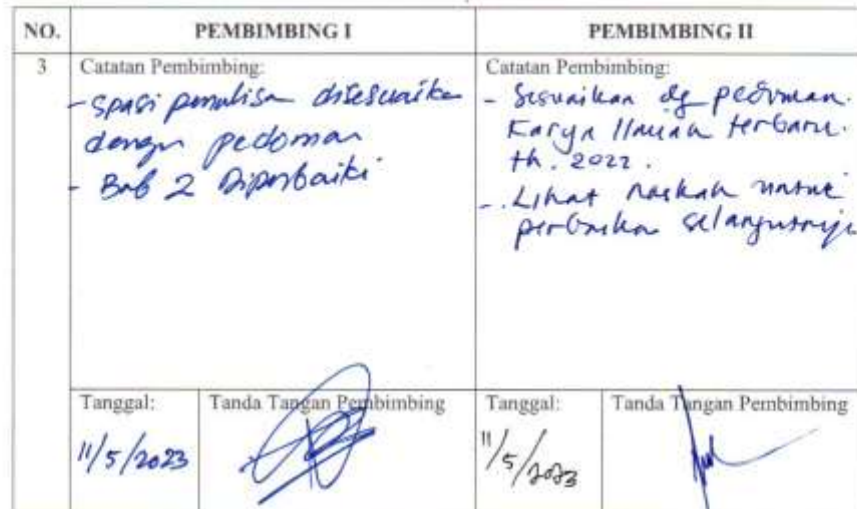 NO.
PEMBIMBING I
PEMBIMBING II
3
Catatan Pembimbing:
- Spasi penulisan disesuaikan
dengan pedoman
- Bab 2 Diperbaiki
Catatan Pembimbing:
- Sesuaikan dg pedoman
Karya Ilmiah terbaru.
th. 2022.
- Lihat naskah untuk
perbaikan selanjutnya
Tanggal:
11/5/2023
Tanda Tangan Pembimbing
Tanggal:
11/5/2023
Tanda Tangan Pembimbing